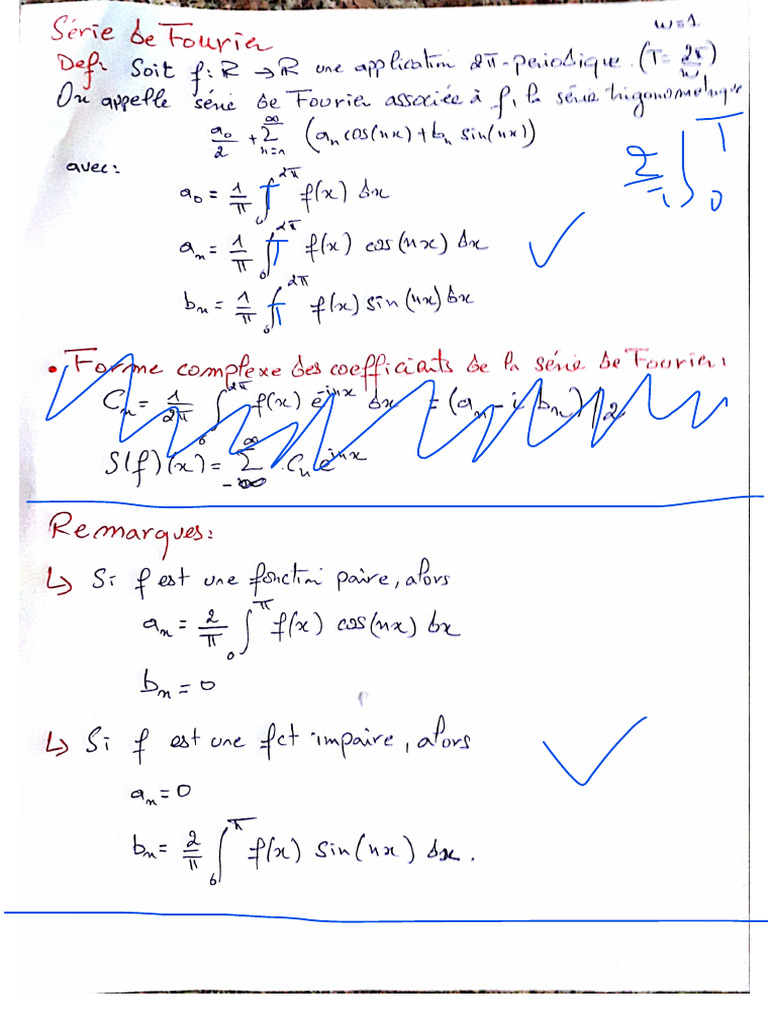 Série de Fourier
w=1.
Def: Soit f: R → R une application 2π-periodique. (T= 2π/w)
On appelle série de Fourier associée à f, la série trigonométrique
a₀/2 + ∑_{n=1}^{∞} (aₙ cos(nx) + bₙ sin(nx))
avec:
2/T ∫₀^T
a₀ = 1/π ∫₀^{2π} f(x) dx
aₙ = 1/π ∫₀^{2π} f(x) cos(nx) dx
bₙ = 1/π ∫₀^{2π} f(x) sin(nx) dx
• Forme complexe des coefficiants de la série de Fourier:
Cₙ = 1/2π ∫₀^{2π} f(x) e^{-inx} dx = (aₙ - i bₙ)/2
S(f)(x) = ∑_{-∞}^{∞} Cₙ e^{inx}
Remarques:
↳ Si f est une fonction paire, alors
aₙ = 2/π ∫₀^π f(x) cos(nx) dx
bₙ = 0
↳ Si f est une fct impaire, alors
aₙ = 0
bₙ = 2/π ∫₀^π f(x) sin(nx) dx.